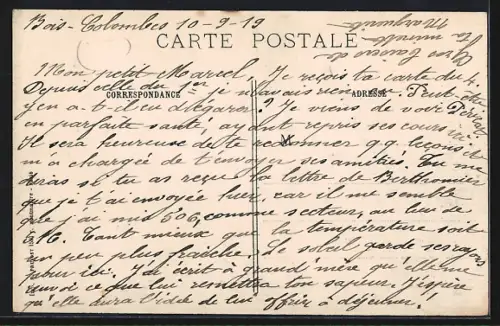 Bois-Colombes 10-9-19
CARTE POSTALE
Mon petit Marcel, Je reçois ta carte du 4.
Depuis celle du 1er je n'avais rien reçu. Peut-être
CORRESPONDANCE
ADRESSE
y en a-t-il eu d'égarée? Je viens de voir
en parfaite santé, ayant repris ses cours
Il sera heureuse de te redonner q.q. leçons, et
m'a chargée de t'envoyer ses amitiés. Tu me
diras si tu as reçu la lettre de Berthomier
que je t'ai envoyée hier, car il me semble
que j'ai mis 606, comme secteur, au lieu de
16. Tant mieux que la température soit
un peu plus fraîche. Le soleil garde ses rayons
pour ici. J'ai écrit à grand'mère qu'elle me
envoi ce que lui remettra ton sapeur. J'espère
qu'elle aura l'idée de lui offrir à déjeuner!
Gros baisers de
ta minette
Marguerite